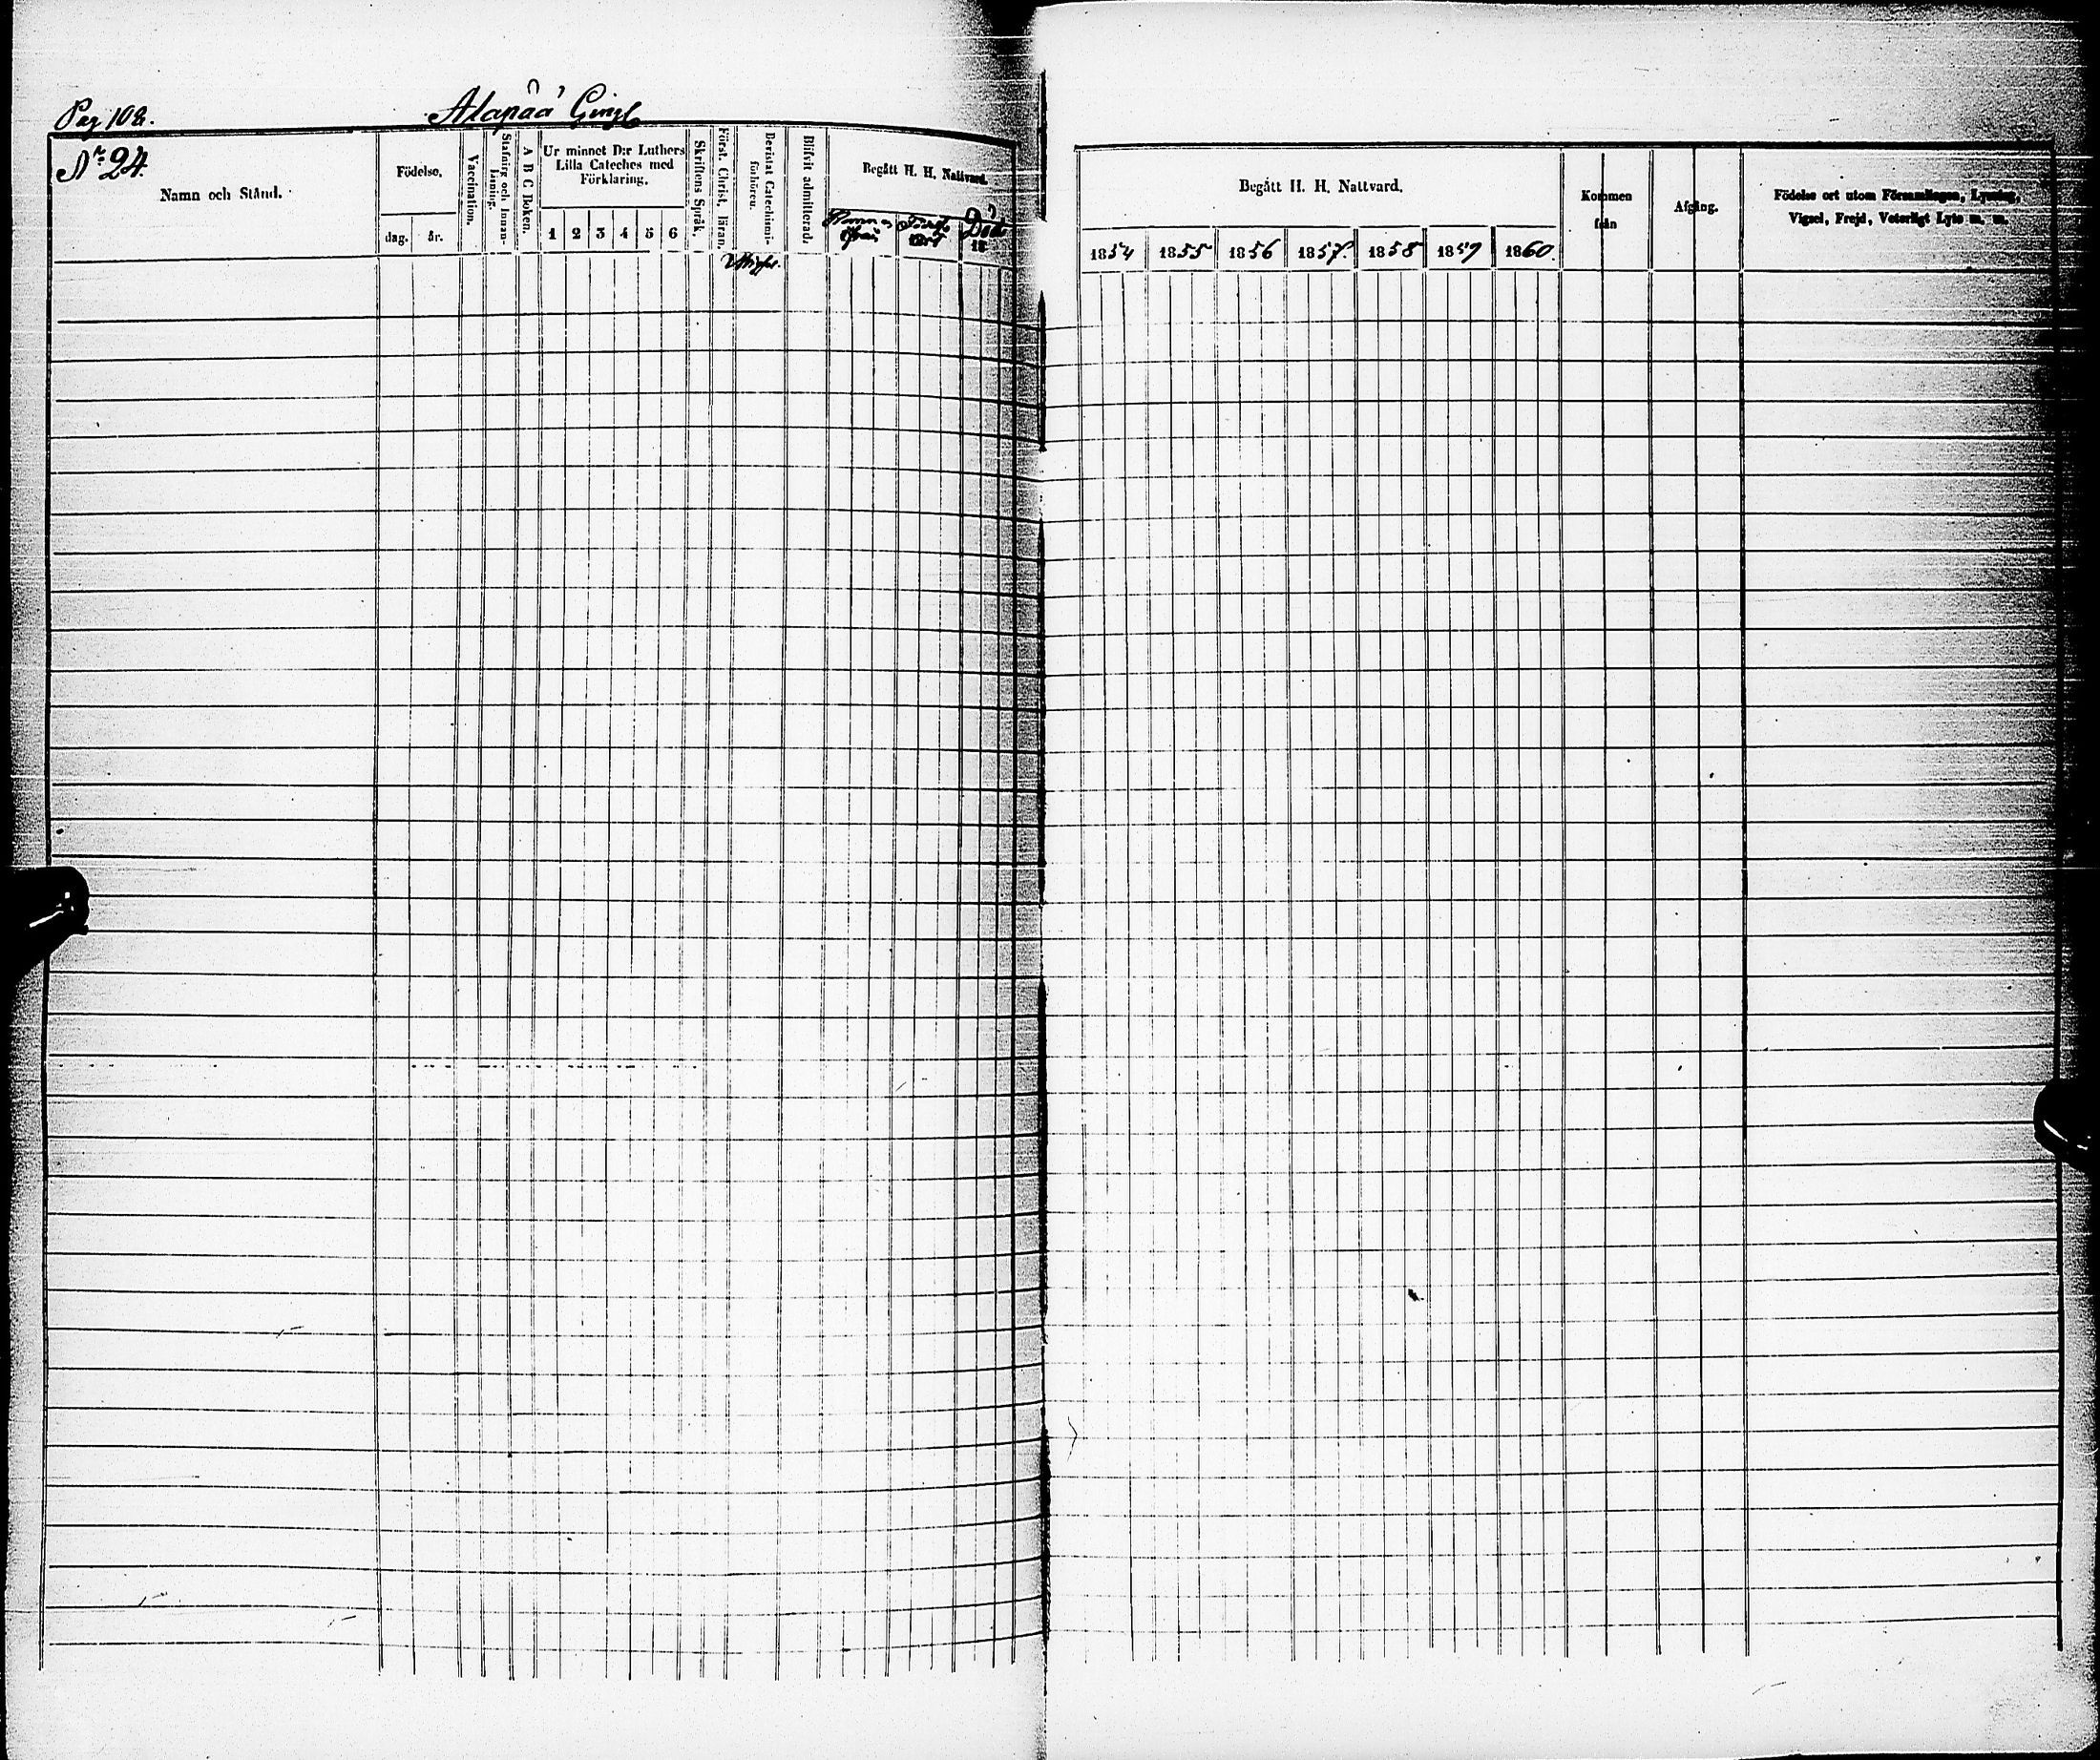 Pag 108.
Alapää
N:r 24.
Namn och Stånd.
Födelse.
dag.
år.
Vaccination.
Stafning och Innan-
läsning.
A B C Boken.
Ur minnet D:r Luthers
Lilla Cateches med
Förklaring.
1 2 3 4 5 6
Skriftens Språk.
Först. Christ. läran.
Bevistat Catechismi-
förhören.
Blifvit admitterad.
Begått H. H. Nattvard.
Död
18
Begått H. H. Nattvard.
1854 1855 1856 1857. 1858 1859 1860.
Kommen
från
Afgång.
Födelse ort utom Församlingen, Lysning,
Vigsel, Frejd, Veterligt Lyte m. m.